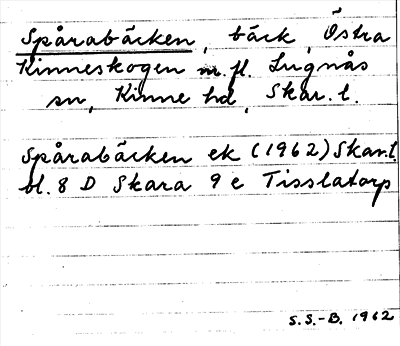 Spårabäcken, bäck, Östra
Kinneskogen m.fl. Lugnås
sn, Kinne hd, Skar. l.
Spårabäcken ek (1962) Skar.l.
bl. 8 D Skara 9 e Tisslatorp
S.S.-B. 1962